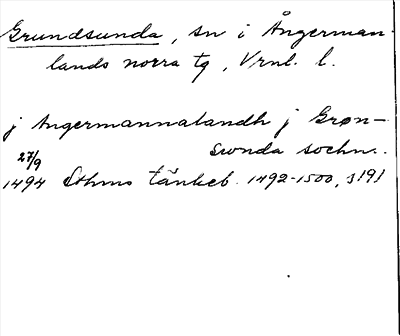 Grundsunda, sn i Ångerman-
lands norra tg, Vrnl. l.
j Angermannalandh j Grøn-
swnda sochn.
27/9
1494 Sthms tänkeb. 1492-1500, s 191